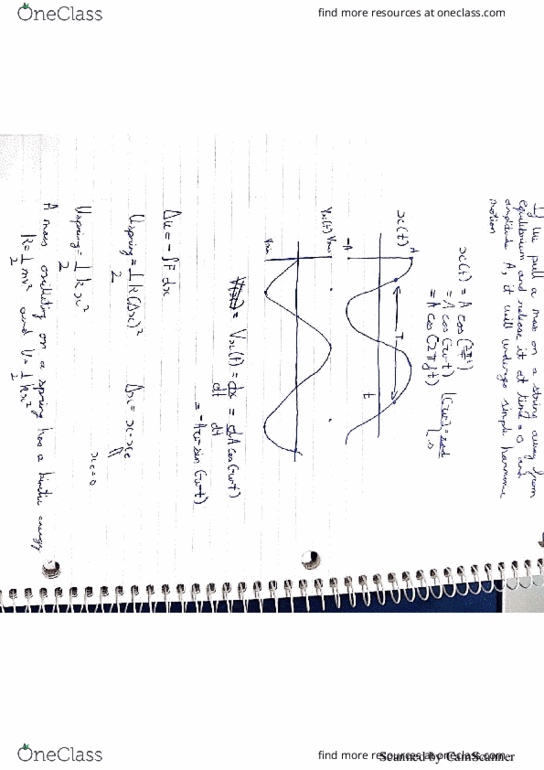 OneClass
find more resources at oneclass.com
If we pull a mass on a string away from
equilibrium and release it at time = 0 and
amplitude A, it will undergo simple harmonic
motion
x(t) = A cos (2πt/T)
= A cos (wt) (w) = rad/s
= A cos (2πft)
x(t) A
T
-A
t
Vx(t) Vmax
Vmin
Vx(t) = dx/dt = d/dt A cos(wt)
= -Aw sin (wt)
Δu = -∫F dx
Uspring = 1/2 k(Δx)² Δx = x - xe
Uspring = 1/2 k x² xe = 0
A mass oscillating on a spring has a kinetic energy
K = 1/2 mv² and U = 1/2 kx²
OneClass
find more resources at oneclass.com
Scanned by CamScanner